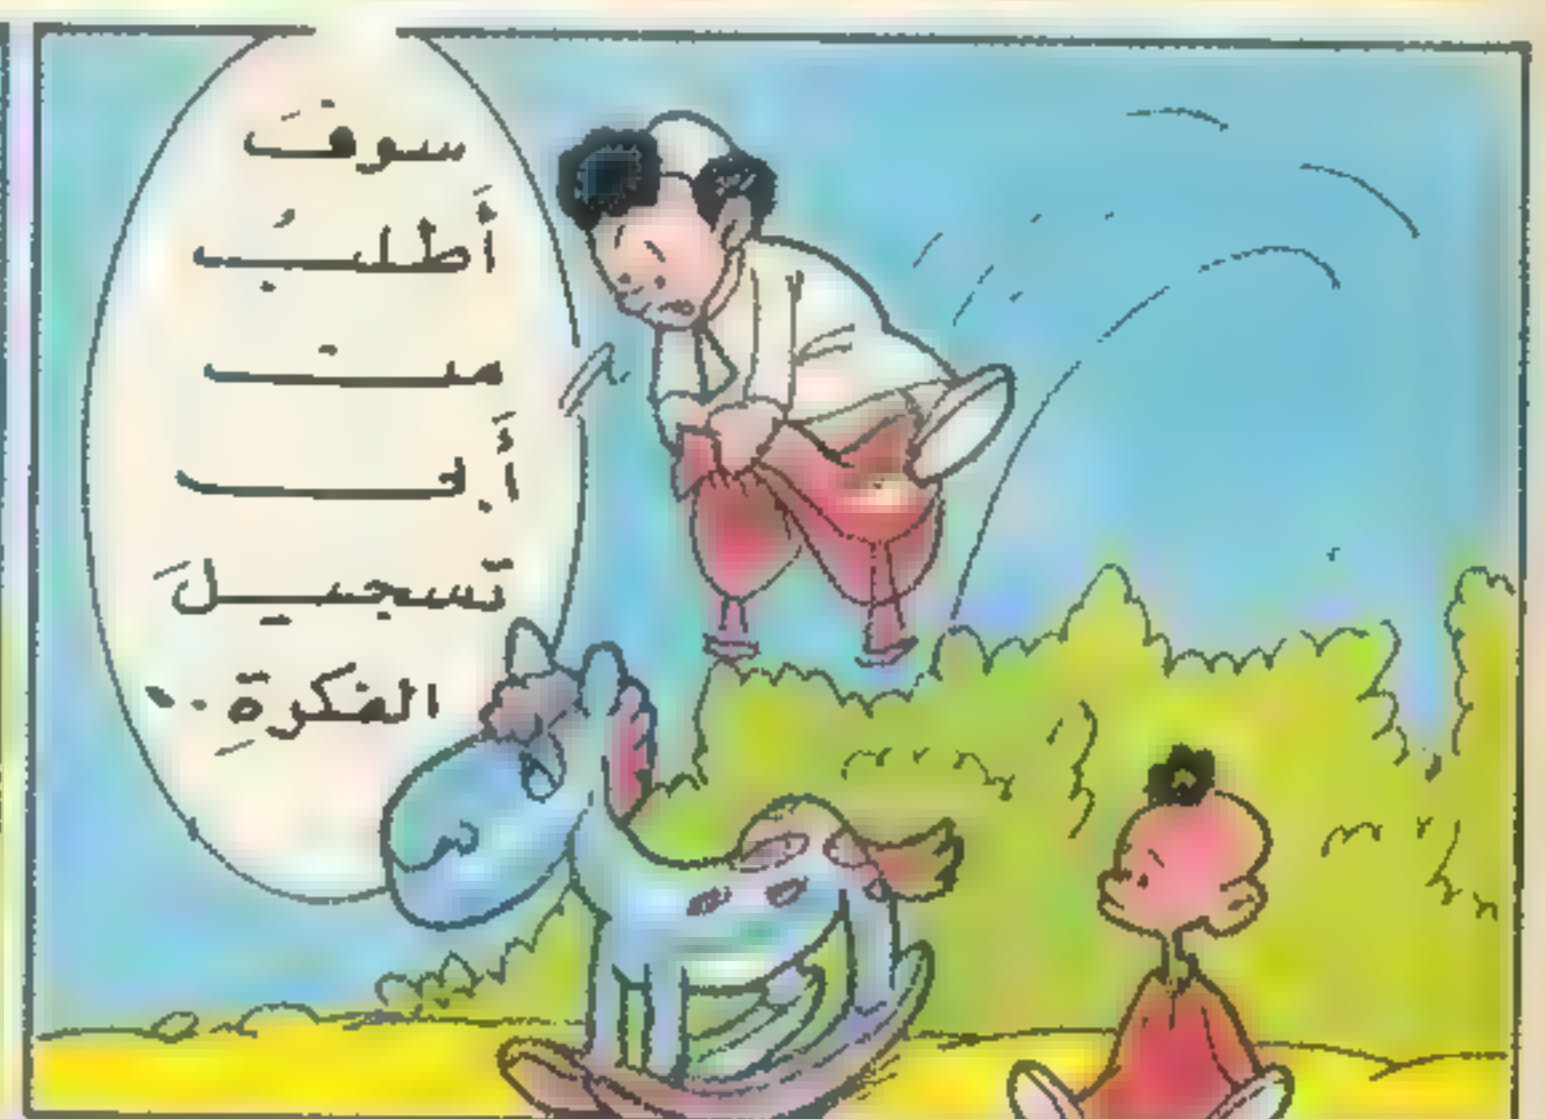 سوفَ
أَطلبُ
من
أَبي
تَسجيلَ
الفكرةِ..